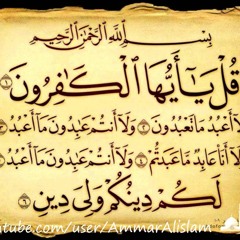 بِسْمِ اللَّهِ الرَّحْمَٰنِ الرَّحِيمِ
قُلْ يَٰٓأَيُّهَا ٱلْكَٰفِرُونَ ١
لَآ أَعْبُدُ مَا تَعْبُدُونَ ٢ وَلَآ أَنتُمْ عَٰبِدُونَ مَآ أَعْبُدُ ٣
وَلَآ أَنَا۠ عَابِدٌ مَّا عَبَدتُّمْ ٤ وَلَآ أَنتُمْ عَٰبِدُونَ مَآ أَعْبُدُ ٥
لَكُمْ دِينُكُمْ وَلِىَ دِينِ ٦
tube.com/user/AmmarAlislam